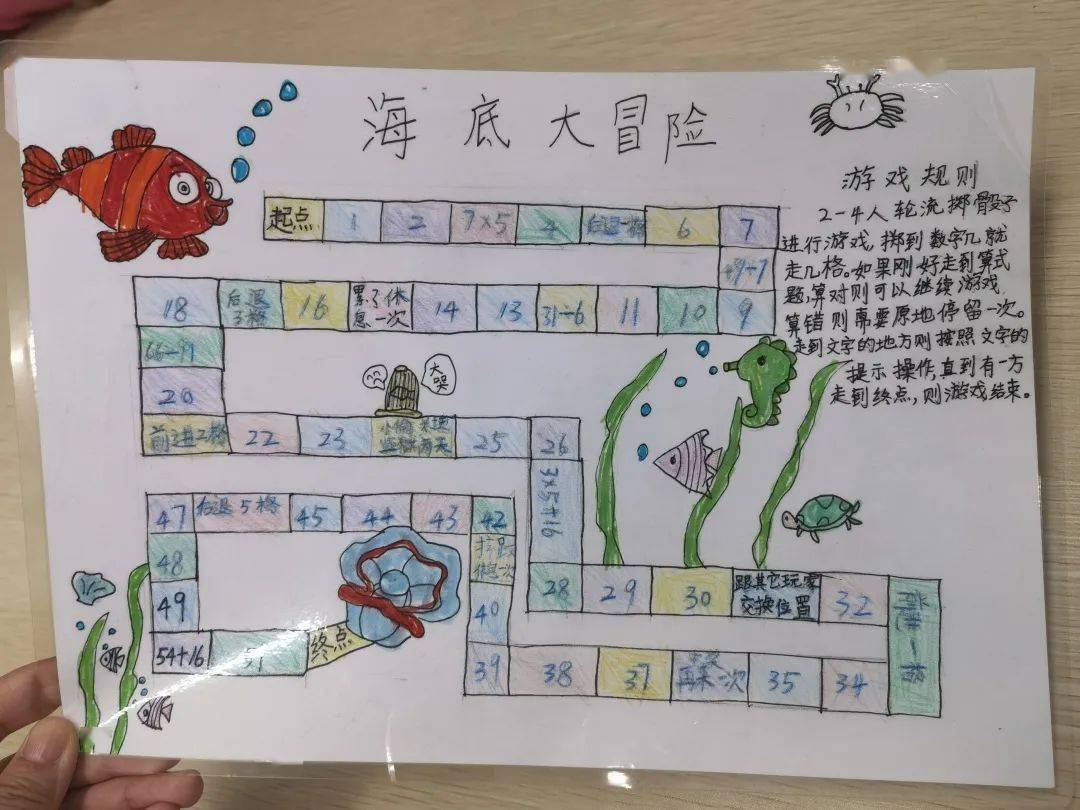 海底大冒险
游戏规则
2-4人轮流掷骰子
进行游戏,掷到数字几就
走几格。如果刚好走到算式
题,算对则可以继续游戏,
算错则需要原地停留一次。
走到文字的地方则按照文字的
提示操作,直到有一方
走到终点,则游戏结束。
起点
1
2
7×5
4
后退一格
6
7
9
10
11
31-6
13
14
累了休
息一次
16
后退
3格
18
20
前进2格
22
23
大哭
25
26
3×5+16
28
29
30
跟其它玩家
交换位置
32
34
35
再来一次
37
38
39
40
42
43
44
45
后退5格
47
48
49
54+16
51
终点